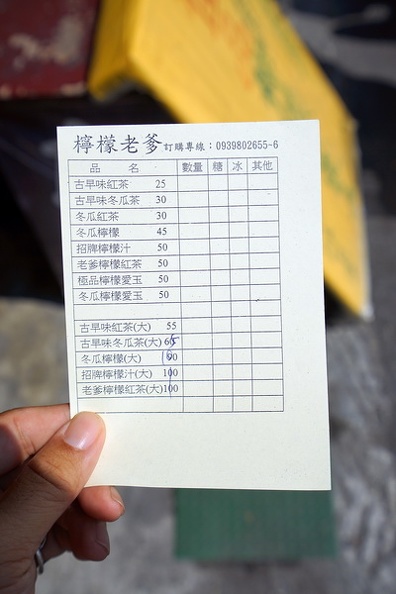 檸檬老爹 訂購專線：0939802655-6
品 名 數量 糖 冰 其他
古早味紅茶 25
古早味冬瓜茶 30
冬瓜紅茶 30
冬瓜檸檬 45
招牌檸檬汁 50
老爹檸檬紅茶 50
極品檸檬愛玉 50
冬瓜檸檬愛玉 50
古早味紅茶(大) 55
古早味冬瓜茶(大) 65
冬瓜檸檬(大) 90
招牌檸檬汁(大) 100
老爹檸檬紅茶(大)100